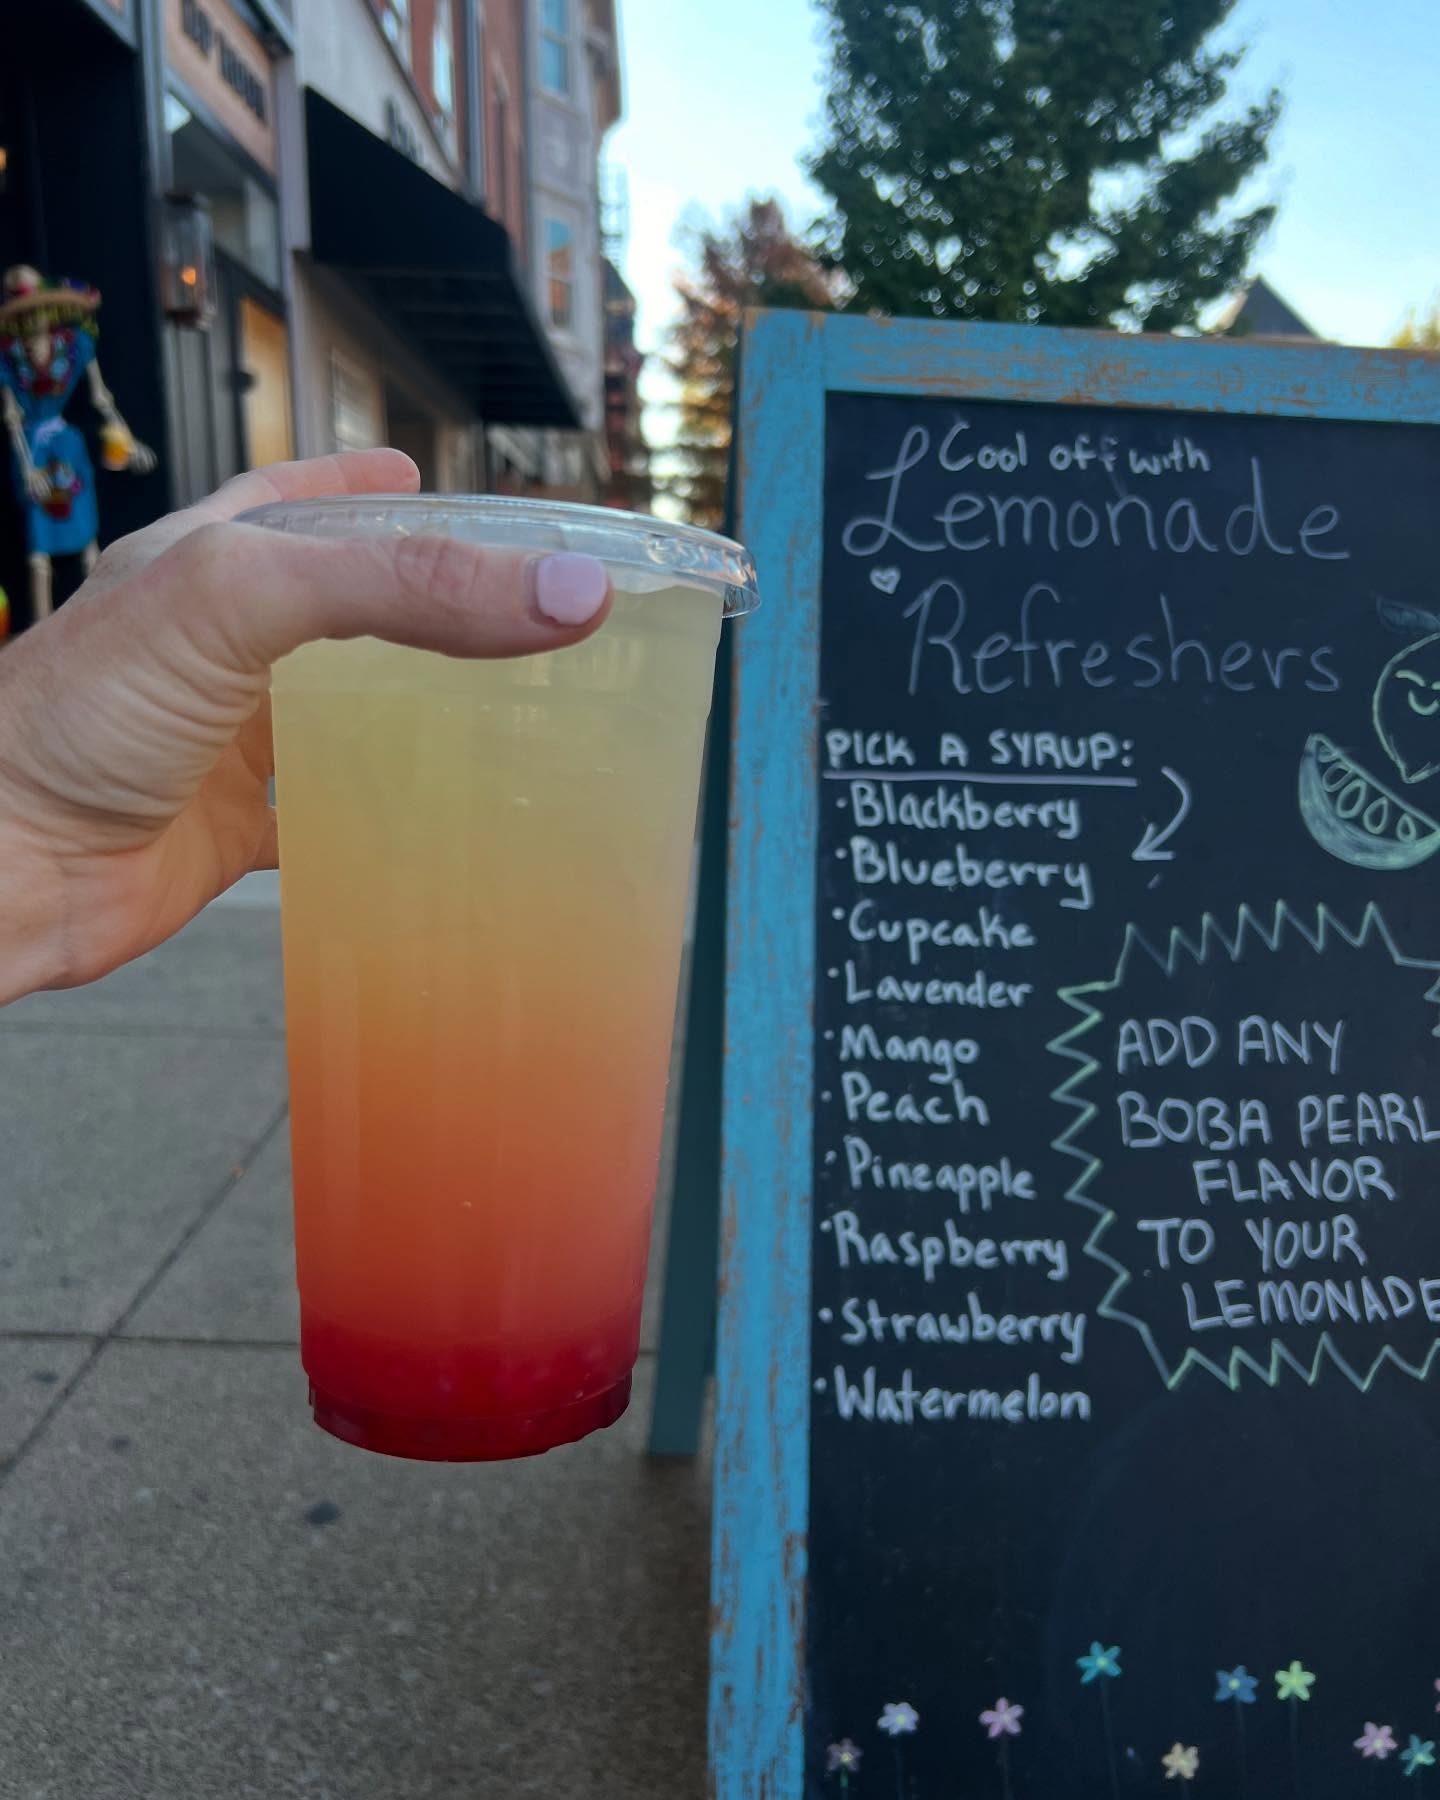 Cool off with
Lemonade
Refreshers
PICK A SYRUP:
·Blackberry
·Blueberry
·Cupcake
·Lavender
·Mango
·Peach
·Pineapple
·Raspberry
·Strawberry
·Watermelon
ADD ANY
BOBA PEARL
FLAVOR
TO YOUR
LEMONADE